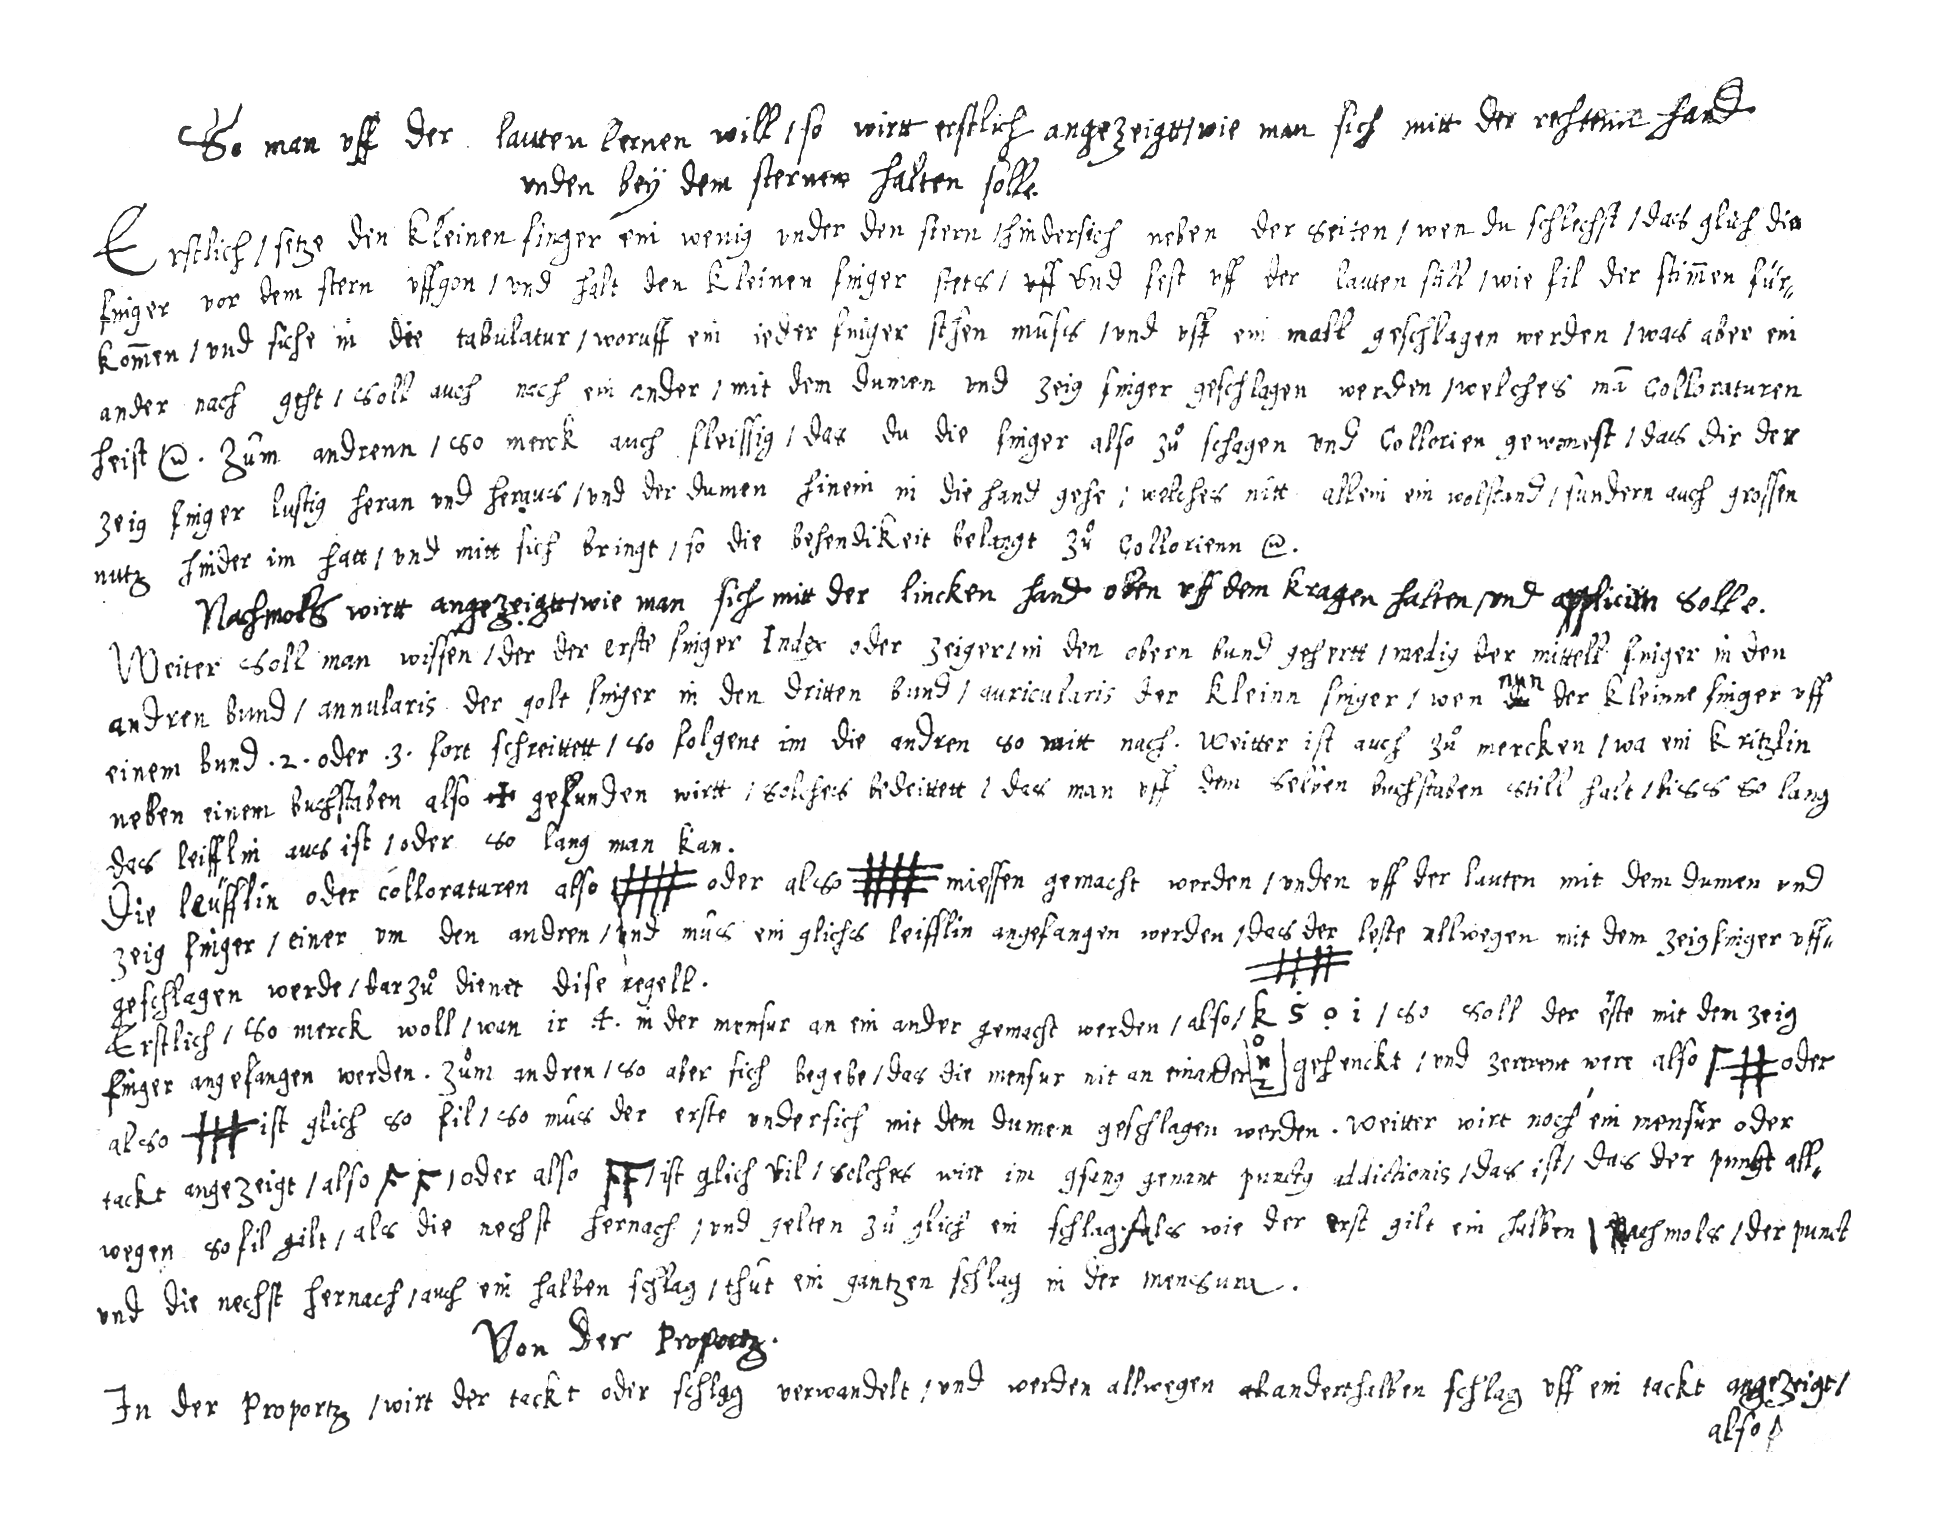 So man vff der lauten lernen will / so wirtt erstlich angezeigtt / wie man sich mitt der rechtenn hand
vnden bey dem sternen halten solle.
Erstlich / setze den kleinen finger ein wenig vnder den stern / hindersich neben der seiten / wen du schlechst / das glich die
finger vor dem stern vffgon / vnd halt den kleinen finger stets / vnd fest vff der lauten still / wie fil der stim̅en für„
kom̅en / vnd siche in die tabulatur / woruff ein ieder finger stehen müss / vnd vff ein mall geschlagen werden / was aber ein
ander nach geht / soll auch noch ein ander / mit dem dumen vnd zeig finger geschlagen werden / welches mā Colloraturen
heist @. Zům andrenn / so merck auch fleissig / das du die finger also zů schagen vnd Collorien gewonest / das dir der
zeig finger lustig heran vnd heraus / vnd der dumen hinein in die hand gehe / welches nitt allein ein wolstand / sundern auch grossen
nutz hinder im hatt / vnd mitt sich bringt / so die behendikeit belangt zů Collorienn @.
Nachmols wirtt angezeigtt / wie man sich mitt der lincken hand oben vff dem kragen halten / vnd applicirn solle.
Weiter soll man wissen / der der erste finger Index oder zeiger / in den obern bund gehertt / medig der mittell finger in den
andren bund / annularis der golt finger in den dritten bund / auricularis der kleinn finger / wen nun der kleinne finger vff
einem bund .2. oder .3. fort schreittett / so folgent im die andren so mitt nach. Weitter ist auch zů mercken / wa ein kritzlin
neben einem buchstaben also ✢ gefunden wirtt / solches bedeittett / das man vff dem selben buchstaben still halt / biss so lang
das leifflin aus ist / oder so lang man kan.
Die leüfflin oder colloraturen also oder also miessen gemacht werden / vnden vff der lauten mit dem dumen vnd
zeig finger / einer vm den andren / vnd müs ein glichs leifflin angefangen werden / das der leste allwegen mit dem zeigfinger vff„
geschlagen werde / darzů dienet dise regell.
Erstlich / so merck woll / wan ir 4. in der mensur an ein ander gemacht werden / also / k 5 o i / so soll der erste mit den zeig
finger angefangen werden. Zům andren / so aber sich begebe / das die mensur nit an einander gehenckt / vnd zertrent were also oder
also ist glich so fil / so müs der erste vndersich mit dem dumen geschlagen werden. Weitter wirt noch ein mensur oder
tackt angezeigt / also / oder also / ist glich vil / solches wirt im gsang genant punctg addictionis / das ist / das der punckt all„
wegen so fil gilt / als die nechst hernach / vnd gelten zů glich ein schlag / als wie der erst gilt ein halben / Nachmols / der punct
vnd die nechst hernach / auch ein halben schlag / thůt ein gantzen schlag in der mensura.
Von der Proportz.
In der Proportz / wirt der tackt oder schlag verwandelt / vnd werden allwegen anderthalben schlag vff ein tackt angezeigt /
also